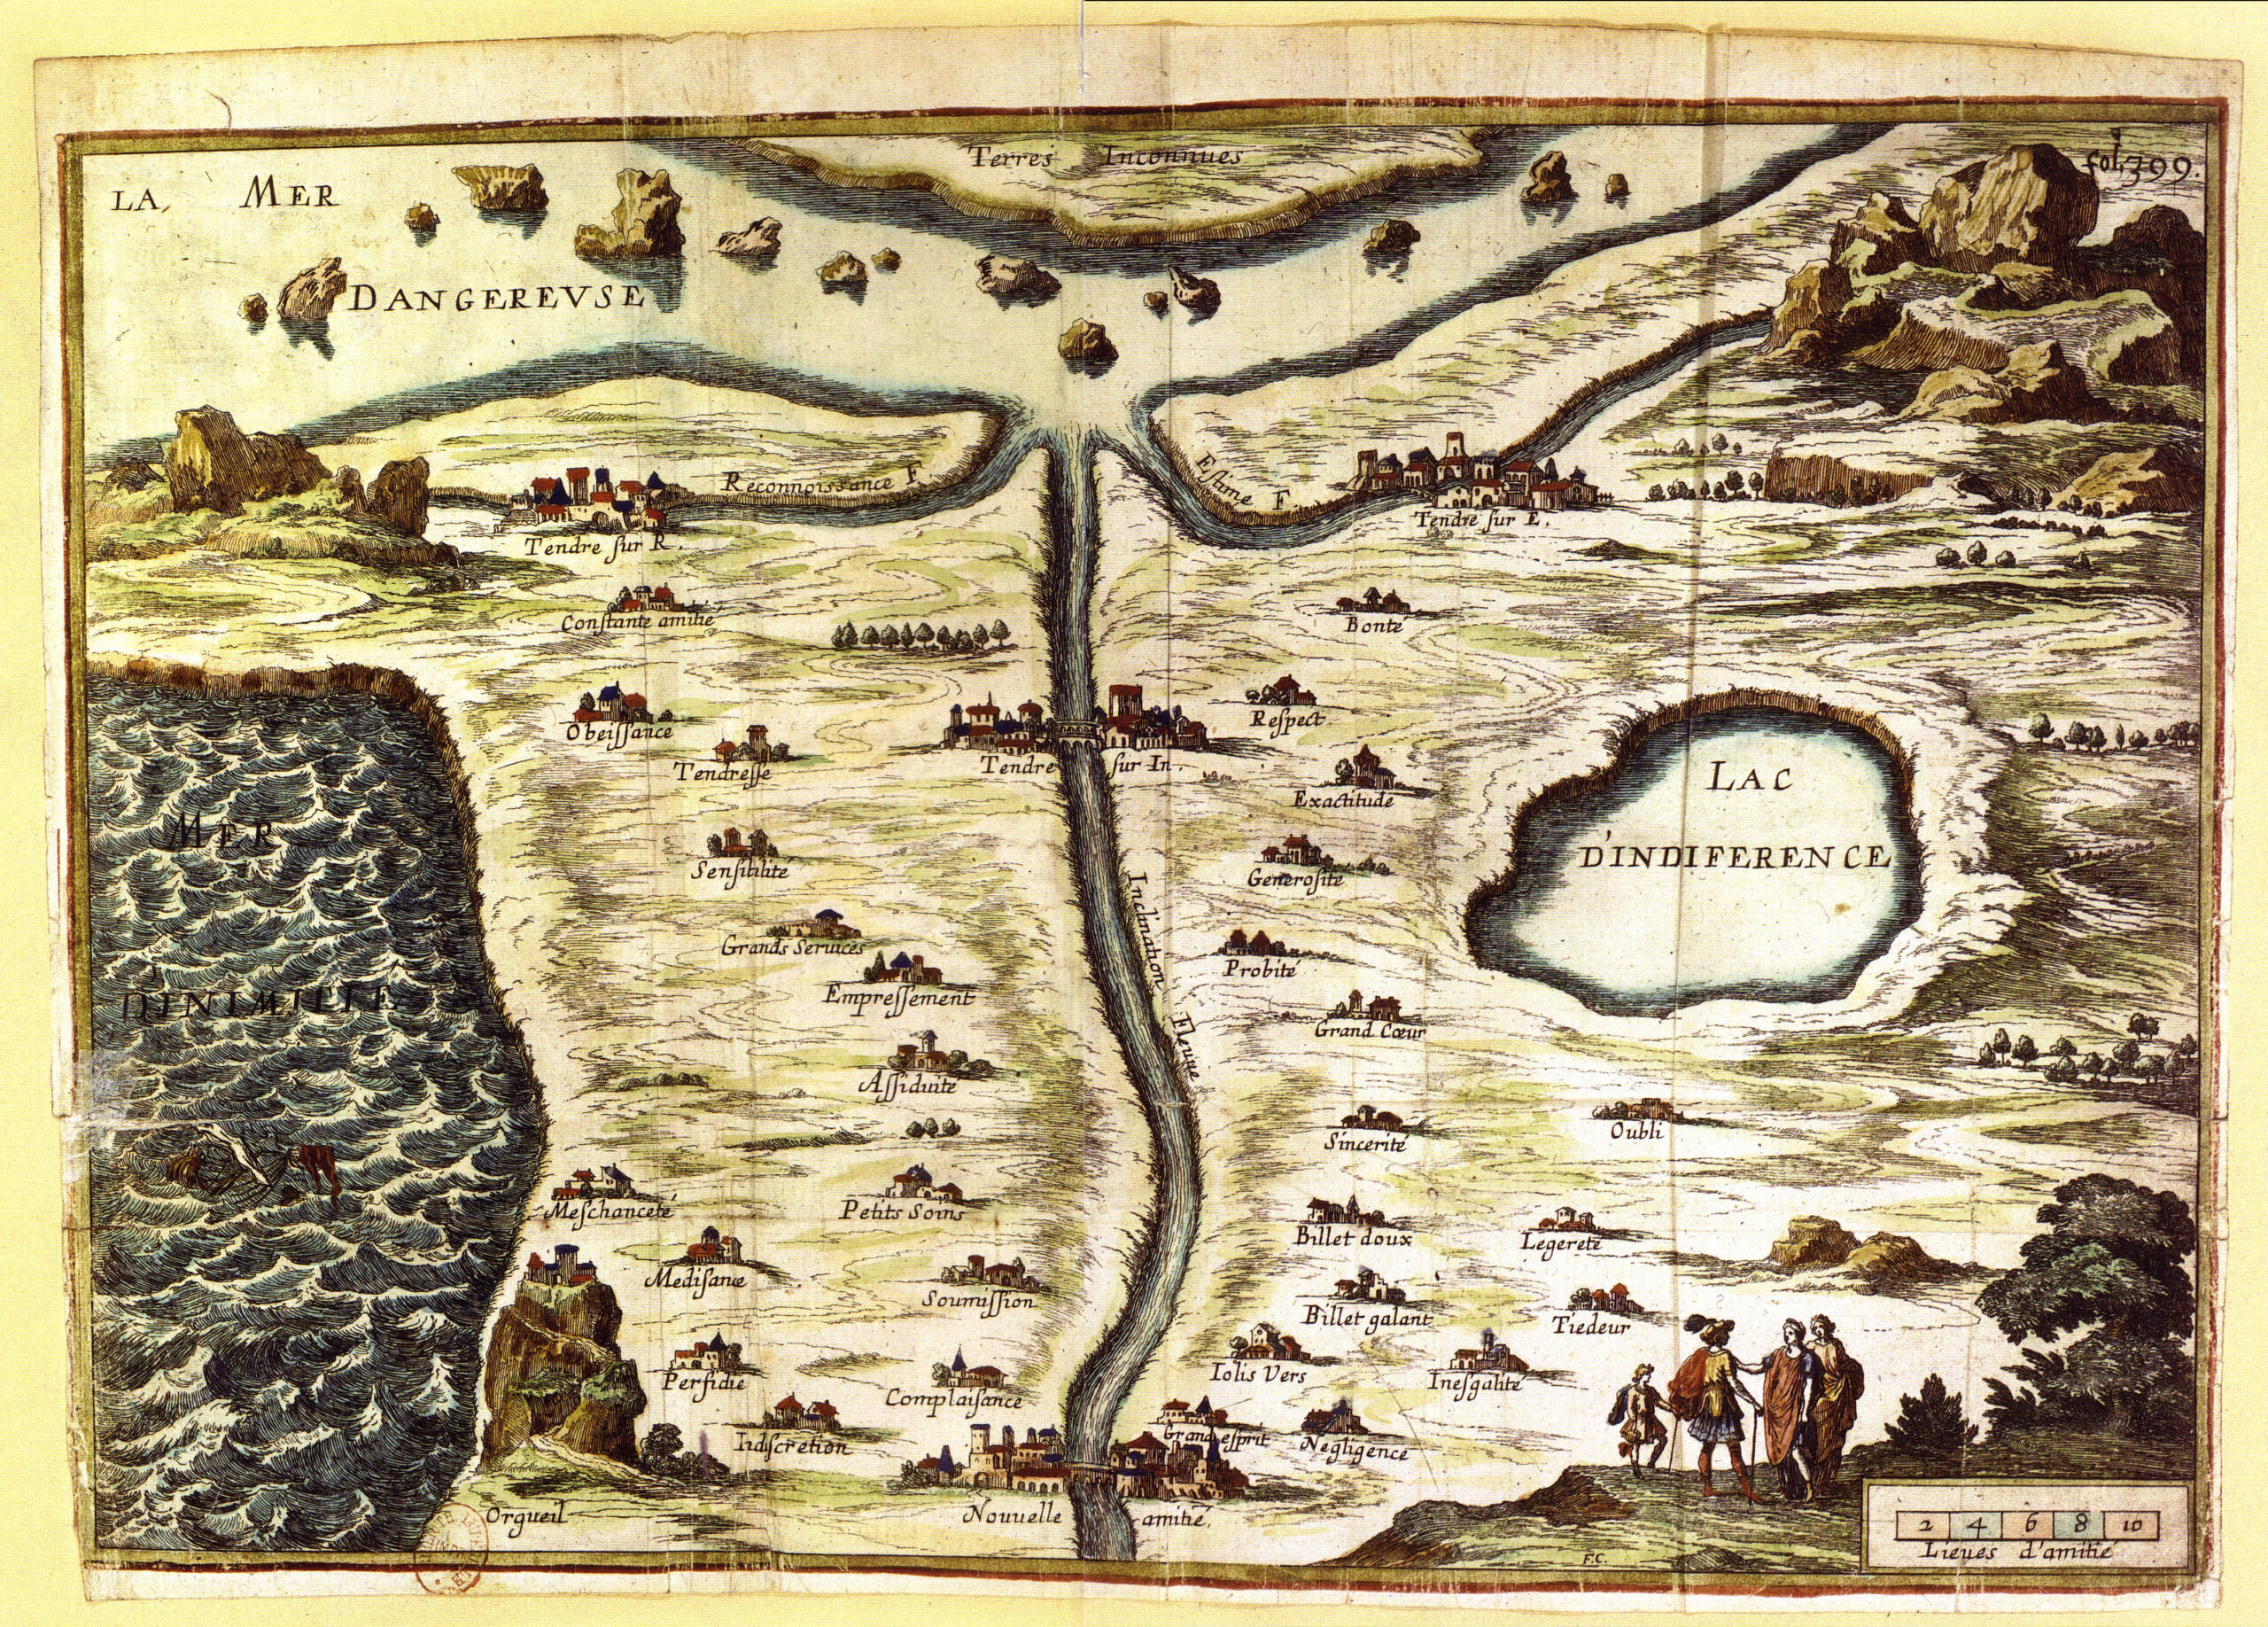 Terres Inconnues
fol. 399.
LA MER
DANGEREVSE
Reconnoissance F.
Estime F.
Tendre sur R.
Tendre sur E.
Constante amitié
Bonté
Obeissance
Respect
Tendresse
Tendre sur In.
Exactitude
LAC
D'INDIFERENCE
MER
DINIMITIE
Sensibilité
Generosité
Inclination Fleuue
Grands Seruices
Probité
Empressement
Grand Cœur
Assiduité
Sincerité
Oubli
Meschanceté
Petits Soins
Billet doux
Legereté
Medisance
Soumission
Billet galant
Tiedeur
Perfidie
Complaisance
Iolis Vers
Inesgalité
Indiscretion
Grand esprit
Negligence
Orgueil
Nouuelle amitié.
2 4 6 8 10
Lieues d'amitié
F.C.